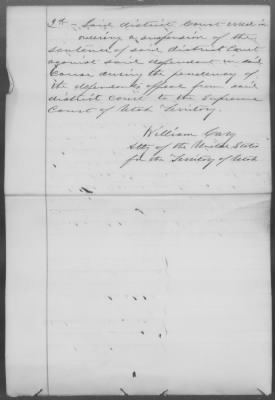 2d - Said district Court erred in
ordering a suspension of the
sentence of said district Court
against said defendant in said
Cause during the pendency of
the defendants appeal from said
district court to the Supreme
Court of Utah Territory.
William Cary
Atty of the United States
for the Territory of Utah